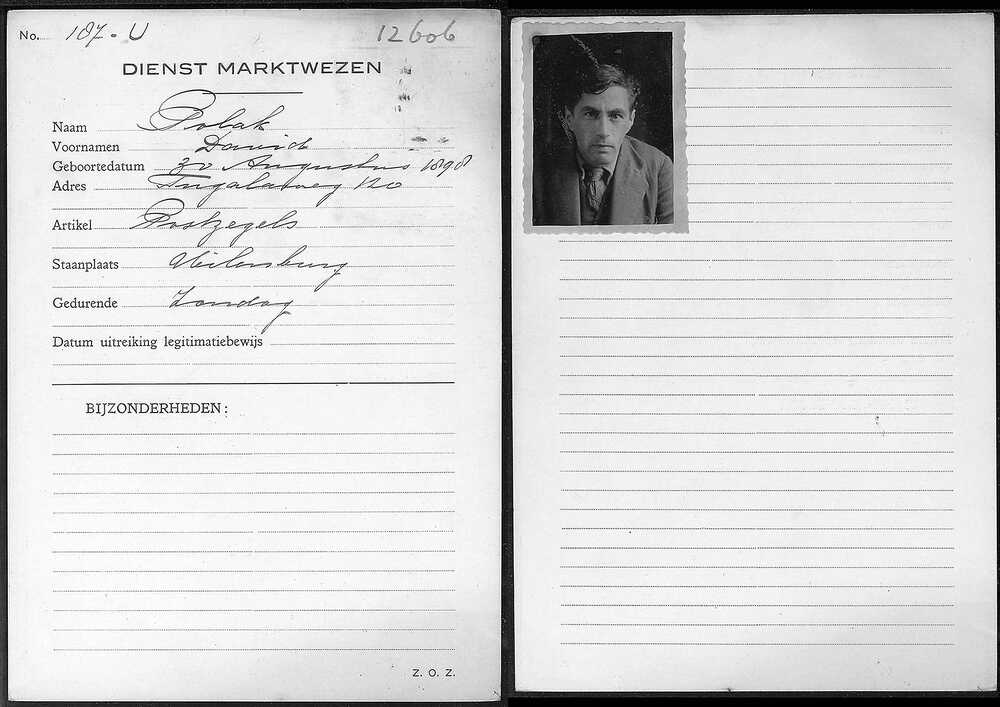 No. 187-U
12606
DIENST MARKTWEZEN
Naam Polak
Voornamen David
Geboortedatum 30 Augustus 1898
Adres Tugelaweg 120
Artikel Postzegels
Staanplaats Uilenburg
Gedurende Zondag
Datum uitreiking legitimatiebewijs
BIJZONDERHEDEN:
Z. O. Z.